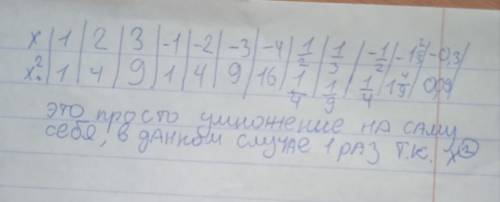 x | 1 | 2 | 3 | -1 | -2 | -3 | -4 | 1/2 | 1/3 | -1/2 | -1 2/3 | -0,3 |
x² | 1 | 4 | 9 | 1 | 4 | 9 | 16 | 1/4 | 1/9 | 1/4 | 1 4/9 | 0,9
это просто умножение на саму
себя, в данном случае 1 раз т.к. x²